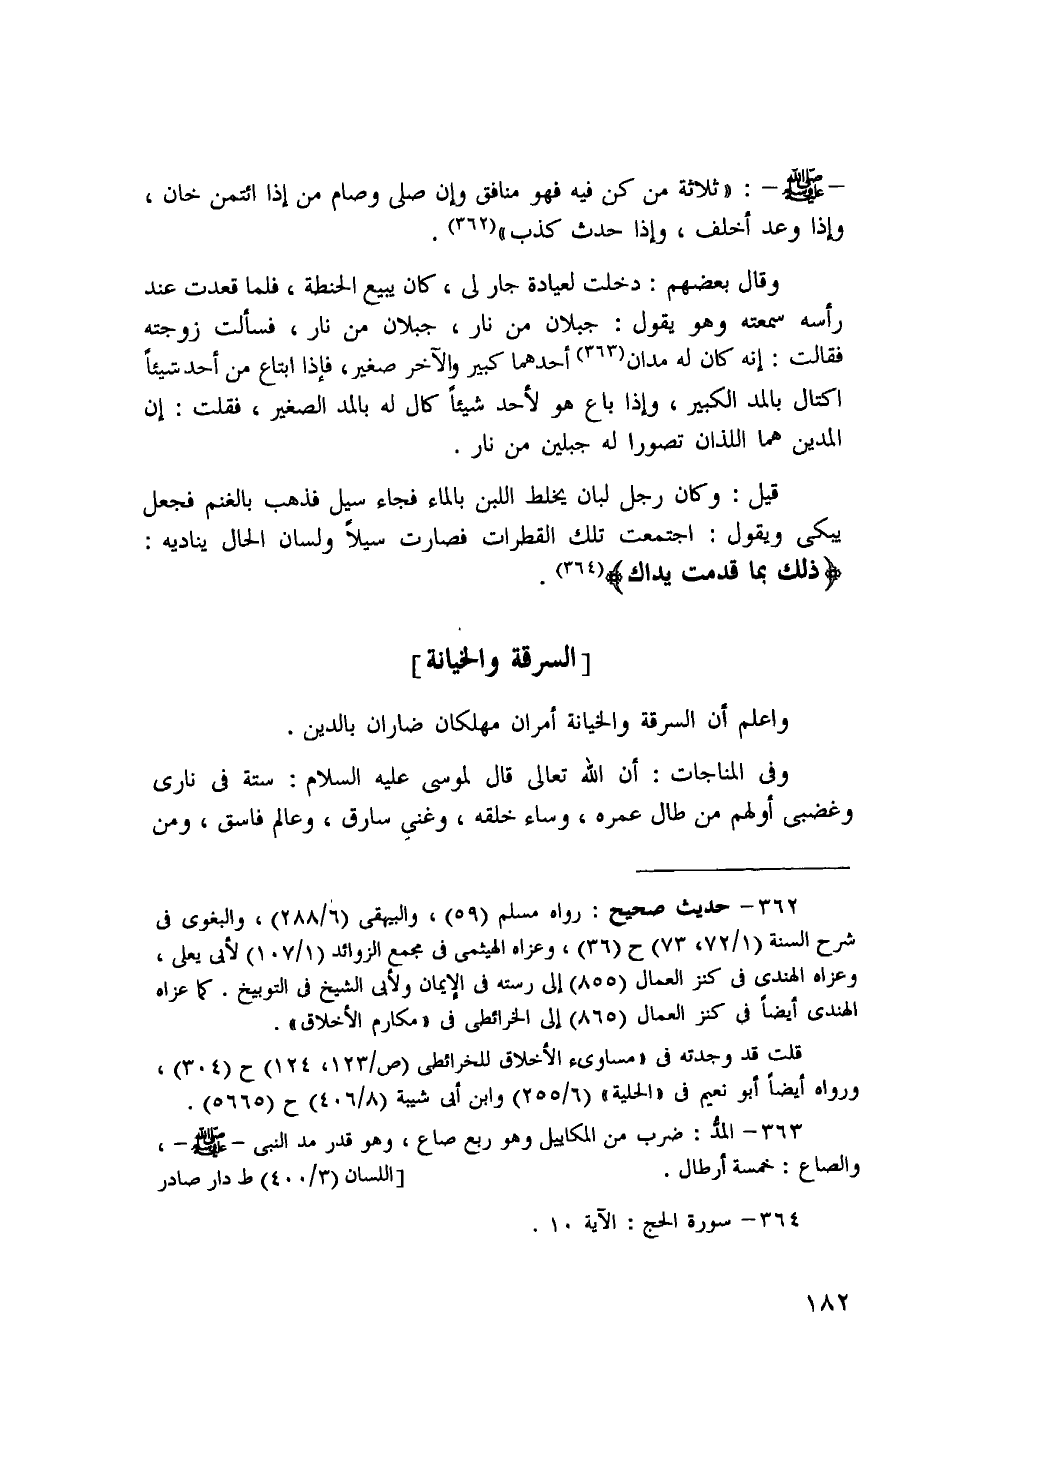 – ﷺ – : « ثلاثة من كن فيه فهو منافق وإن صلى وصام من إذا ائتمن خان ،
وإذا وعد أخلف ، وإذا حدث كذب»(٣٦٢) .
وقال بعضهم : دخلت لعيادة جار لى ، كان يبيع الحنطة ، فلما قعدت عند
رأسه سمعته وهو يقول : جبلان من نار ، جبلان من نار ، فسألت زوجته
فقالت : إنه كان له مدان(٣٦٣) أحدهما كبير والآخر صغير، فإذا ابتاع من أحد شيئاً
اكتال بالمد الكبير ، وإذا باع هو لأحد شيئاً كال له بالمد الصغير ، فقلت : إن
المدين هما اللذان تصورا له جبلين من نار .
قيل : وكان رجل لبان يخلط اللبن بالماء فجاء سيل فذهب بالغنم فجعل
يبكى ويقول : اجتمعت تلك القطرات فصارت سيلاً ولسان الحال يناديه :
﴿ذلك بما قدمت يداك﴾(٣٦٤) .
[ السرقة والخيانة ]
واعلم أن السرقة والخيانة أمران مهلكان ضاران بالدين .
وفى المناجات : أن الله تعالى قال لموسى عليه السلام : ستة فى نارى
وغضبى أولهم من طال عمره ، وساء خلقه ، وغنيٍ سارق ، وعالم فاسق ، ومن
٣٦٢– حديث صحيح : رواه مسلم (٥٩) ، والبيهقى (٢٨٨/٦) ، والبغوى فى
شرح السنة (٧٢/١، ٧٣) ح (٣٦) ، وعزاه الهيثمى فى مجمع الزوائد (١٠٧/١) لأبى يعلى ،
وعزاه الهندى فى كنز العمال (٨٥٥) إلى رسته فى الإيمان ولأبى الشيخ فى التوبيخ . كما عزاه
الهندى أيضاً فى كنز العمال (٨٦٥) إلى الخرائطى فى «مكارم الأخلاق» .
قلت قد وجدته فى «مساوىء الأخلاق للخرائطى (ص/١٢٣، ١٢٤) ح (٣٠٤) ،
ورواه أيضاً أبو نعيم فى «الحلية» (٢٥٥/٦) وابن أبى شيبة (٤٠٦/٨) ح (٥٦٦٥) .
٣٦٣– المدُّ : ضرب من المكاييل وهو ربع صاع ، وهو قدر مد النبى – ﷺ – ،
والصاع : خمسة أرطال . [اللسان (٤٠٠/٣) ط دار صادر
٣٦٤– سورة الحج : الآية ١٠ .
١٨٢